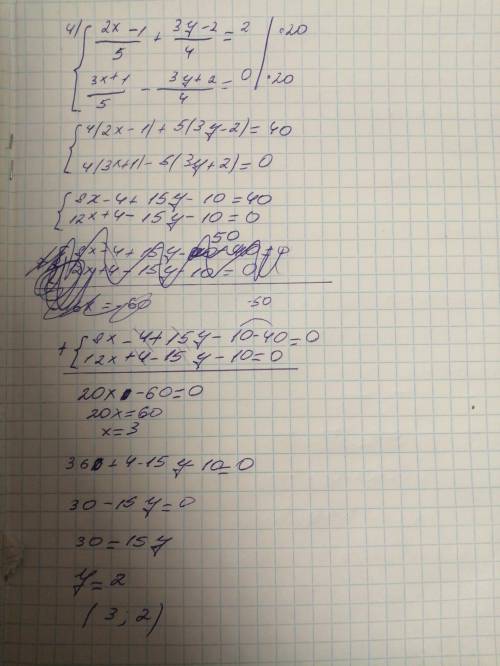 4) { (2x-1)/5 + (3y-2)/4 = 2 | ·20
(3x+1)/5 - (3y+2)/4 = 0 | ·20
{ 4(2x-1)+5(3y-2)=40
4(3x+1)-5(3y+2)=0
{ 8x-4+15y-10=40
12x+4-15y-10=0
50
-50
+ { 8x-4+15y-10-40=0
12x+4-15y-10=0
20x-60=0
20x=60
x=3
36+4-15y-10=0
30-15y=0
30=15y
y=2
(3; 2)